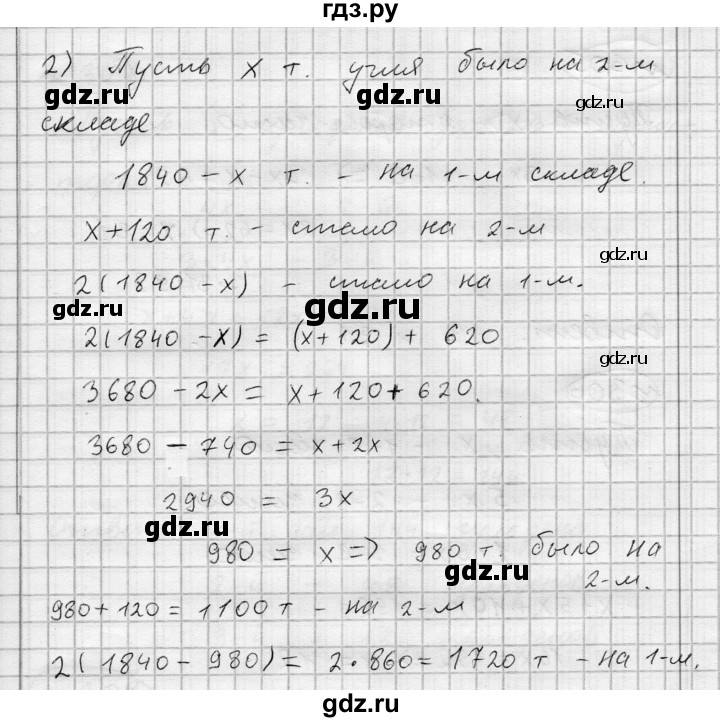 гдз.ру
2) Пусть x т. угля было на 2-м
gdz.ru
gdz.ru
gdz.ru
складе
1840 - x т. - на 1-м складе.
x+120 т. - стало на 2-м
gdz.ru
2(1840 - x) - стало на 1-м.
gdz.ru
gdz.ru
2(1840 - x) = (x+120) + 620
gdz.ru
3680 - 2x = x+120+620.
3680 - 740 = x+2x
2940 = 3x
gdz.ru
980 = x => 980 т. было на
gdz.ru
2-м.
980+120 = 1100 т - на 2-м
2(1840 - 980) = 2·860 = 1720 т - на 1-м.
gdz.ru